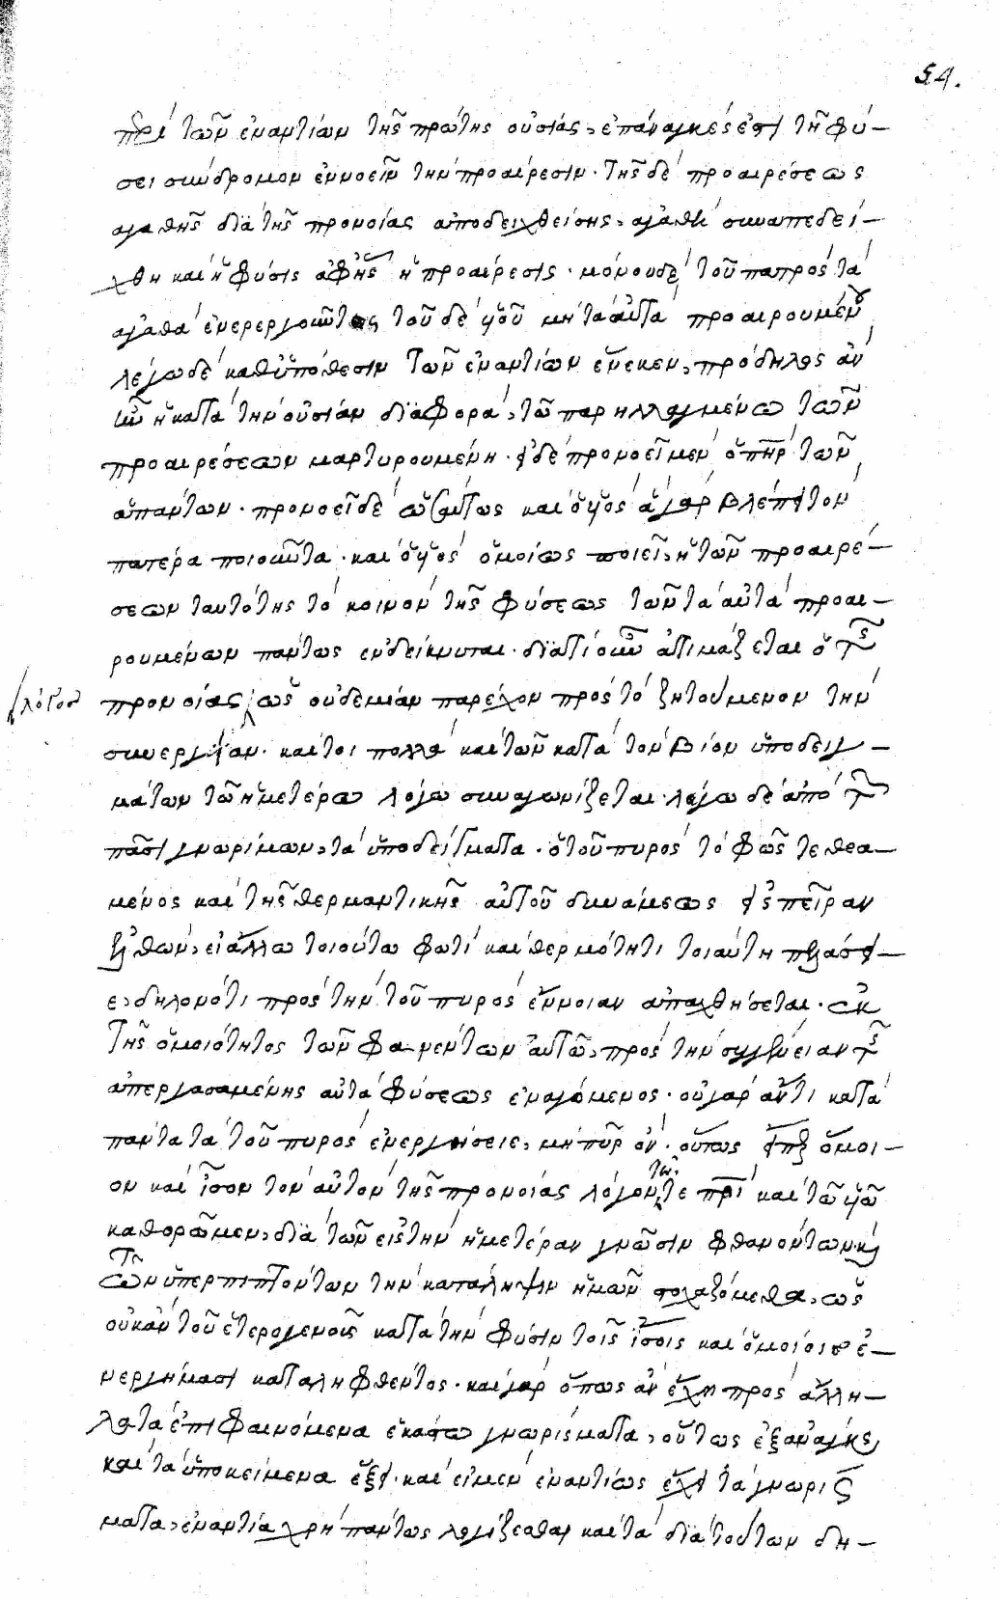 54.
περὶ τῶν ἐναντίων τῆς πρώτης οὐσίας, ἐπάναγκές ἐστι τῇ φύ-
σει σύνδρομον ἐννοεῖν τὴν προαίρεσιν. τῆς δὲ προαιρέσεως
ἀγαθῆς διὰ τῆς προνοίας ἀποδειχθείσης, ἀγαθὴ συναπεδεί-
χθη καὶ ἡ φύσις ἀφ' ἧς ἡ προαίρεσις. μόνου δὲ τοῦ πατρὸς τὰ
ἀγαθὰ ἐνεργοῦντος τοῦ δὲ υἱοῦ μὴ τὰ αὐτὰ προαιρουμένου
λέγω δὲ καθ' ὑπόθεσιν τῶν ἐναντίων ἕνεκεν, πρόδηλος ἂν
ὢν ἡ κατὰ τὴν οὐσίαν διαφορὰ, τῶ παρηλλαγμένω τῶν
προαιρέσεων μαρτυρουμένη. εἰ δὲ προνοεῖ μὲν ὁ πατὴρ τῶν
ἁπάντων. προνοεῖ δὲ ὡσαύτως καὶ ὁ υἱὸς ἃ γὰρ βλέπει τὸν
πατέρα ποιοῦντα. καὶ ὁ υἱὸς ὁμοίως ποιεῖ, ἡ τῶν προαιρέ-
σεων ταυτότης τὸ κοινὸν τῆς φύσεως τῶν τὰ αὐτὰ προαι-
ρουμένων πάντως ἐνδείκνυται. διατί οὖν ἀτιμάζεται ὁ τῆς
προνοίας λόγος ὡς οὐδεμίαν παρέχον πρὸς τὸ ζητούμενον τὴν
συνεργίαν. καί τοι πολλὰ καὶ τῶν κατὰ τὸν βίον ὑποδειγ-
μάτων τῶ ἡμετέρω λόγω συναγωνίζεται. λέγω δὲ ἀπὸ τῶν
πᾶσι γνωρίμων, τὰ ὑποδείγματα. ὁ τοῦ πυρὸς τὸ φῶς τεθεα-
μένος καὶ τῆς θερμαντικῆς αὐτοῦ δυνάμεως εἰς πεῖραν
ἐλθὼν, εἰ ἄλλω τοιούτω φωτὶ καὶ θερμότητι τοιαύτη πελάσει-
ε, δηλονότι πρὸς τὴν τοῦ πυρὸς ἔννοιαν ἀπαχθήσεται. ἐκ
τῆς ὁμοιότητος τῶν φανέντων αὐτῶ, πρὸς τὴν συγγένειαν τῆς
ἀπεργασαμένης αὐτὰ φύσεως ἐναγόμενος. οὐ γὰρ ἄν τι κατὰ
πάντα τὰ τοῦ πυρὸς ἐνεργήσειε, μὴ πῦρ ὂν. οὕτως εἴπερ ὅμοι-
ον καὶ ἴσον τὸν αὐτὸν τῆς προνοίας λόγον τῶ τε πατρὶ καὶ τῶ υἱῶ
καθορῶμεν, διὰ τῶν εἰς τὴν ἡμετέραν γνῶσιν φθανόντων καὶ
τῶν ὑπερπιπτόντων τὴν κατάληψιν ἡμῶν στοχαζόμεθα, ὡς
οὐκ ἂν τοῦ ἑτερογενοῦς κατὰ τὴν φύσιν τοῖς ἴσοις καὶ ὁμοίοις ἐ-
νεργήμασι καταληφθέντος. καὶ γὰρ ὅπως ἂν ἔχη πρὸς ἄλλη-
λα τὰ ἐπιφαινόμενα ἑκάστω γνωρίσματα, οὕτως ἐξανάγκης
καὶ τὰ ὑποκείμενα ἕξει. καὶ εἰ μὲν ἐναντίως ἔχει τὰ γνωρίς
ματα, ἐναντία χρὴ πάντως λογίζεσθαι καὶ τὰ διὰ τούτων δη-